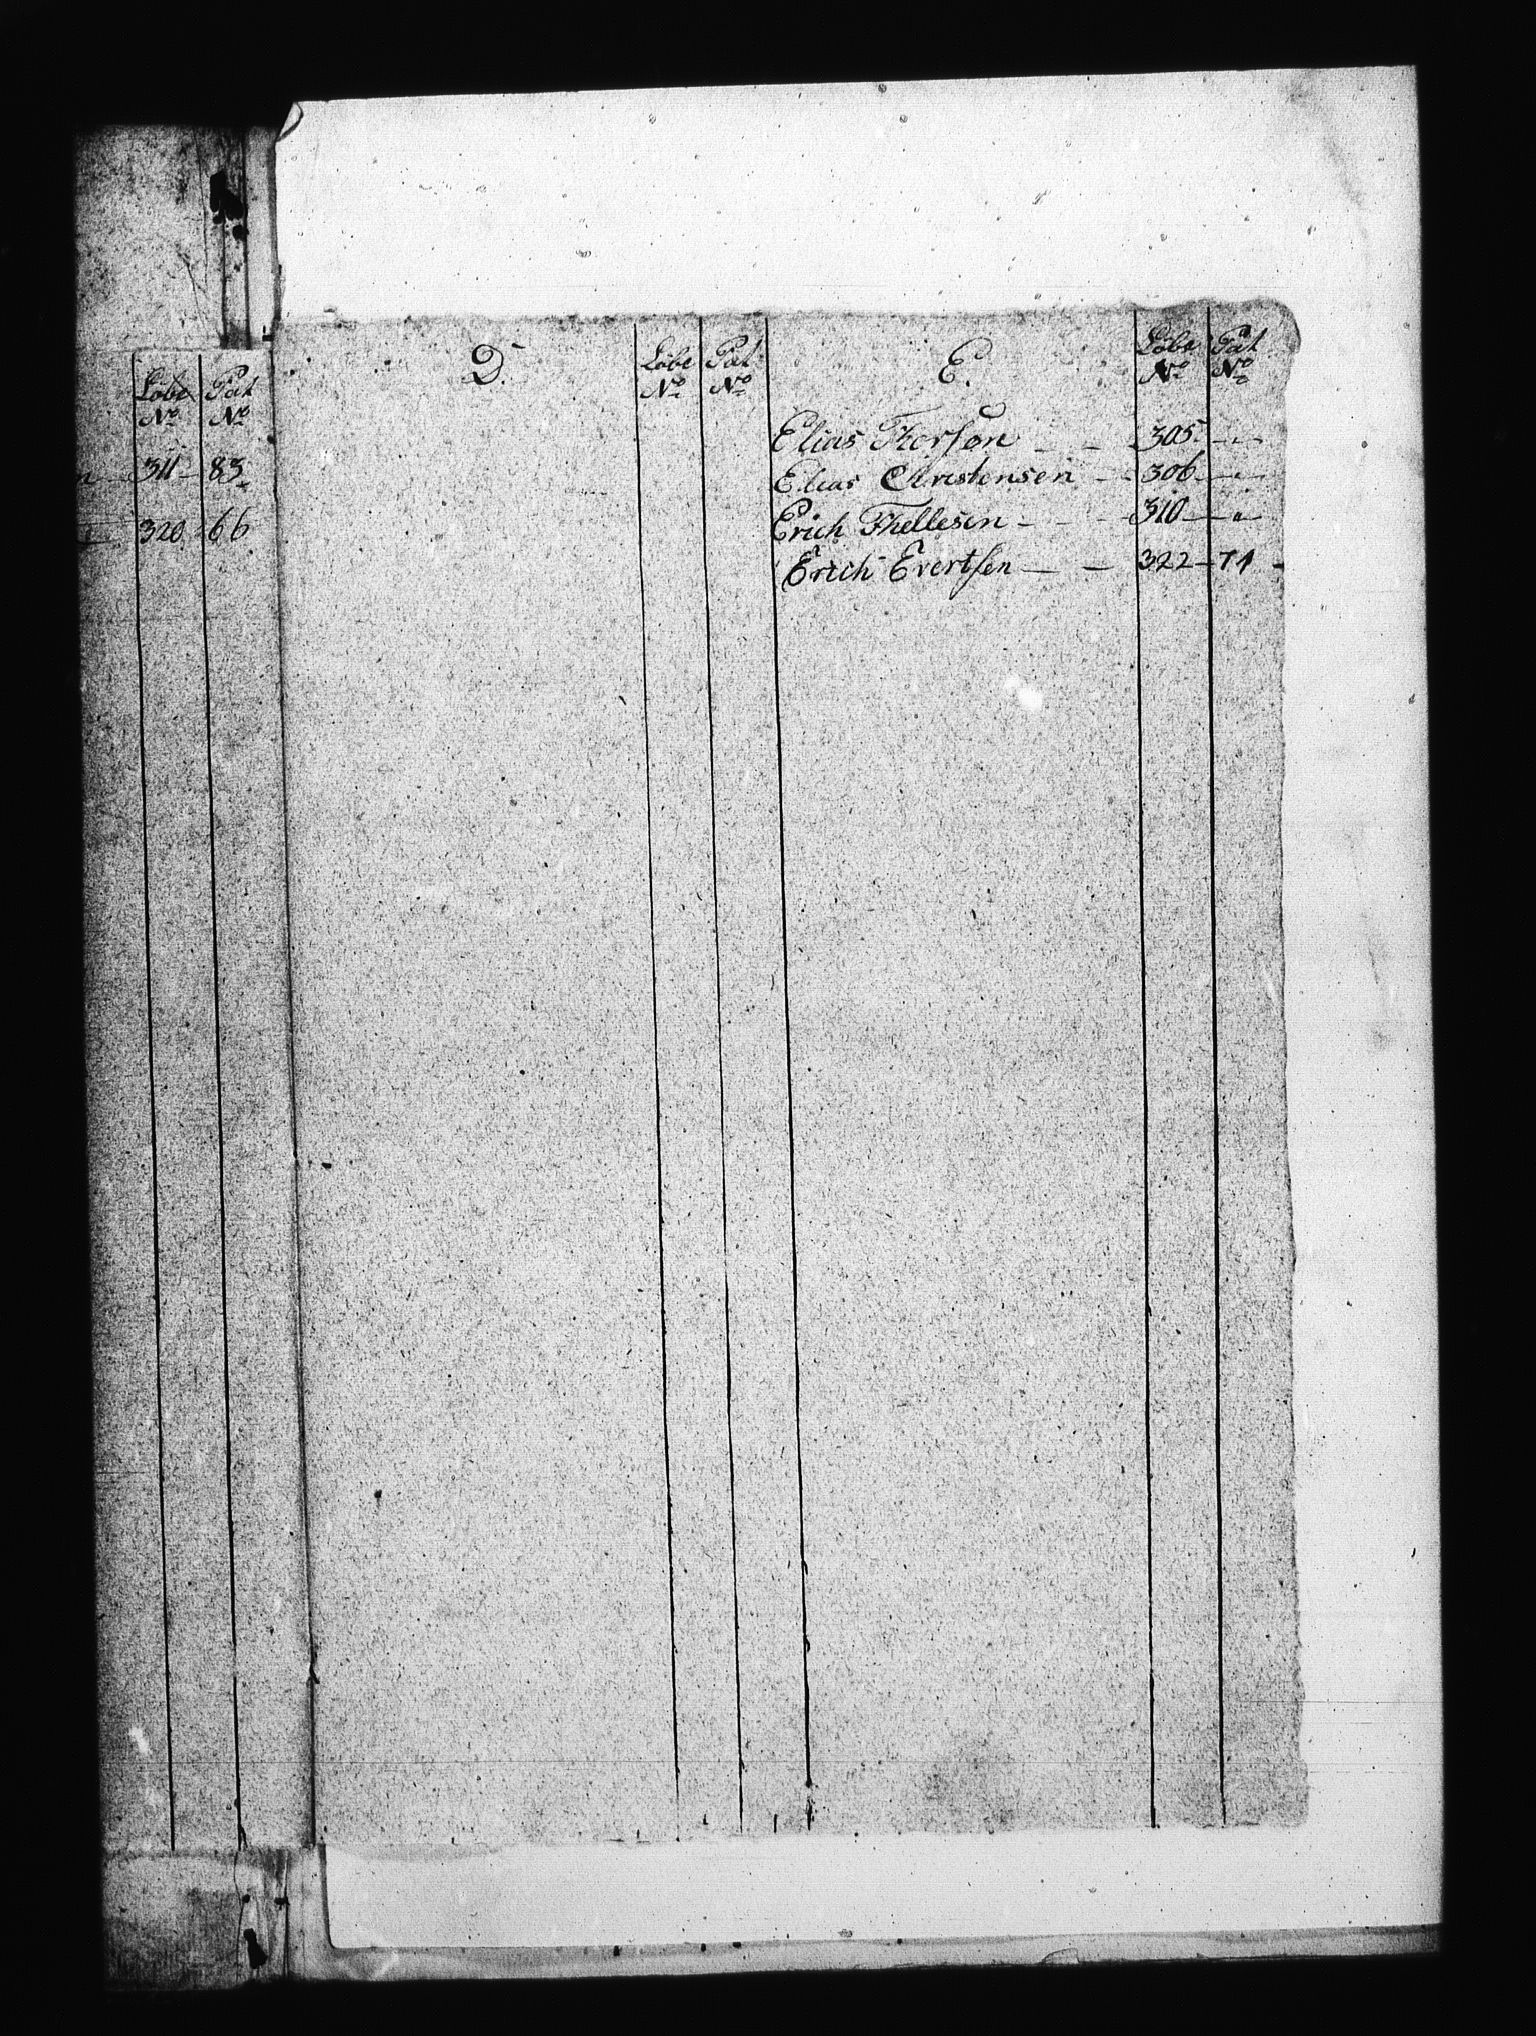 Løbe Pat
No No
311 83
320 66
D. Løbe Pat
No No
E. Løbe Pat
No No
Elias Thorsøn — — 305 — " —
Elias Christensen — 306 — " —
Erich Thellesen — — 310 — " —
Erich Evertsen — — 322 — 71